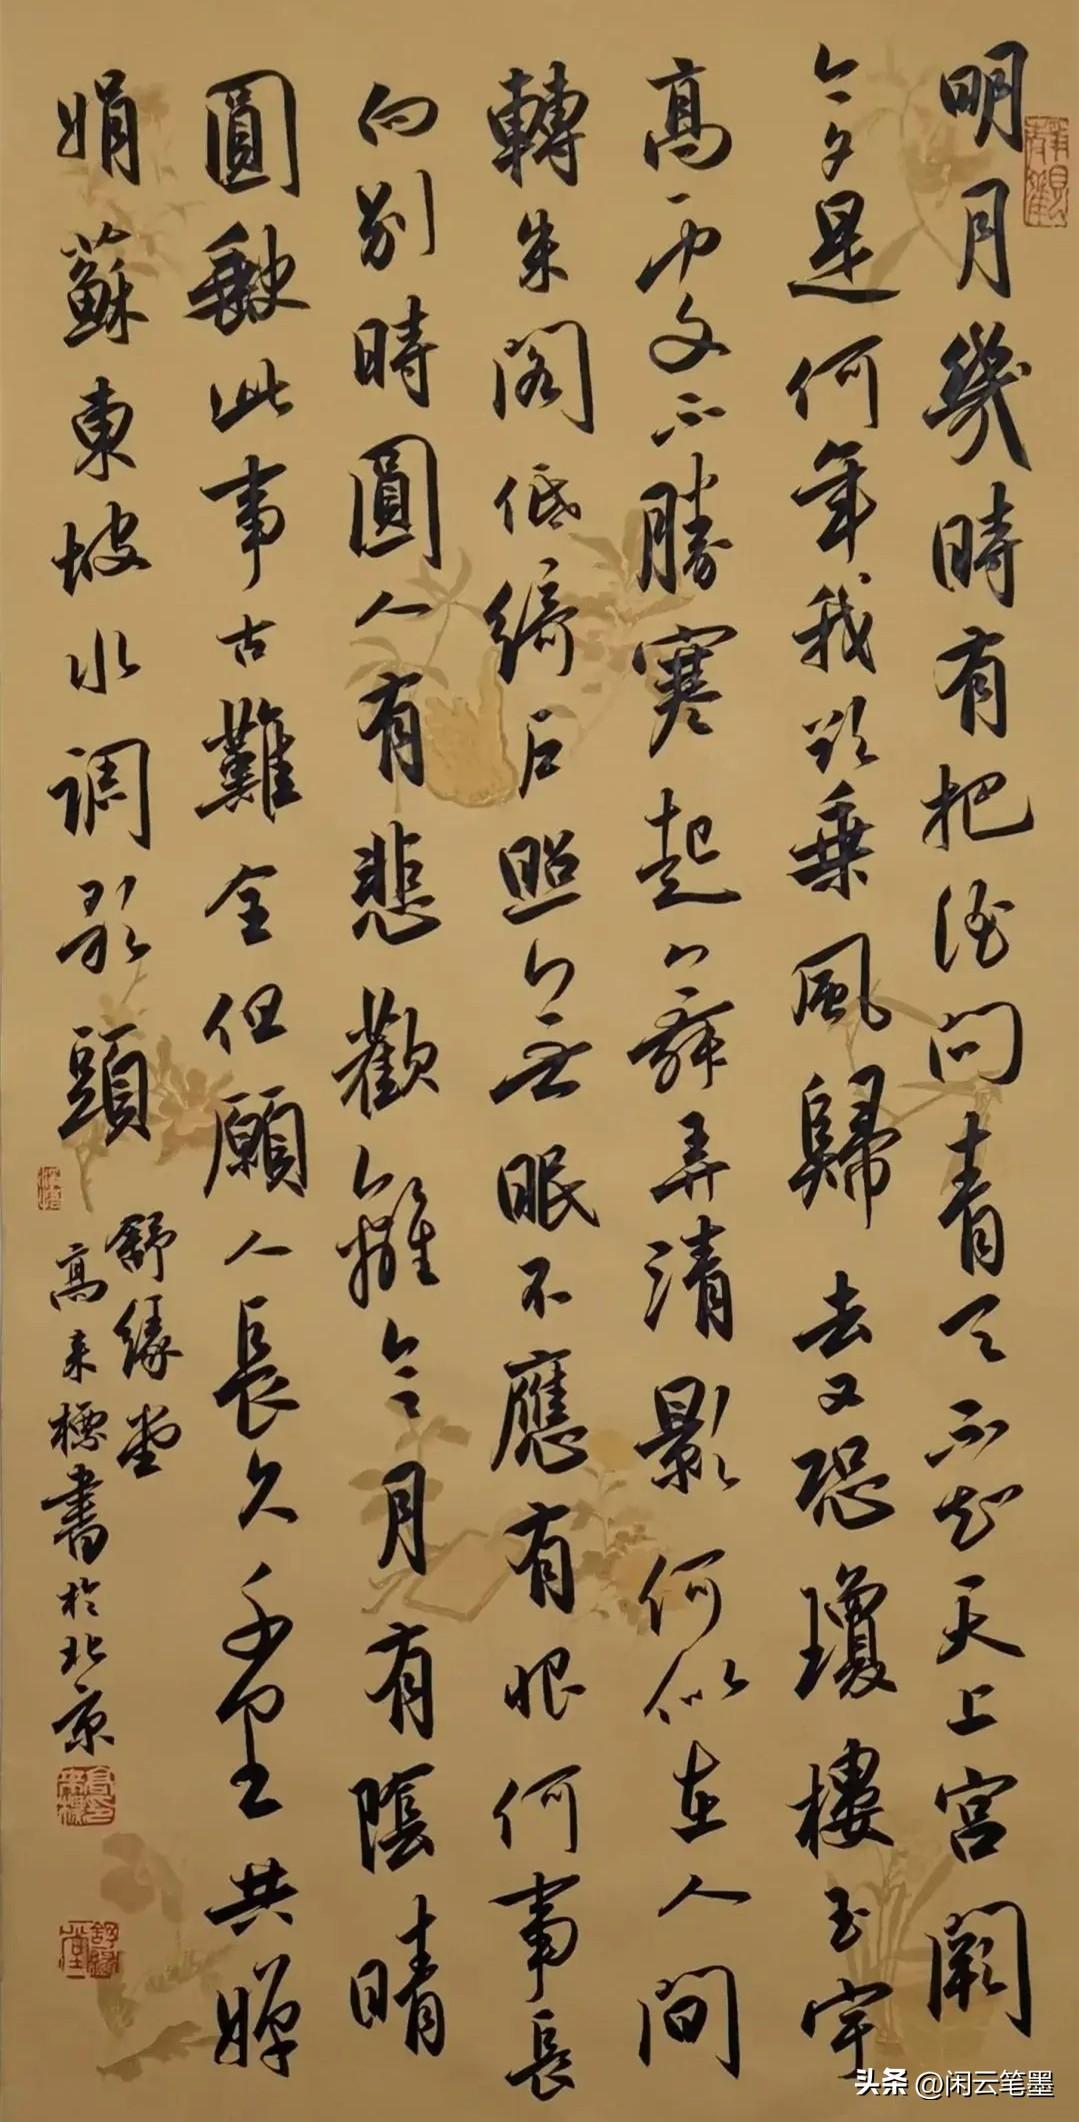 明月幾時有把酒問青天不知天上宮闕
今夕是何年我欲乘風歸去又恐瓊樓玉宇
高處不勝寒起舞弄清影何似在人間
轉朱閣低綺戶照無眠不應有恨何事長
向別時圓人有悲歡離合月有陰晴
圓缺此事古難全但願人長久千里共嬋
娟蘇東坡水調歌頭
舒緣堂
高來標書於北京
头条 @闲云笔墨